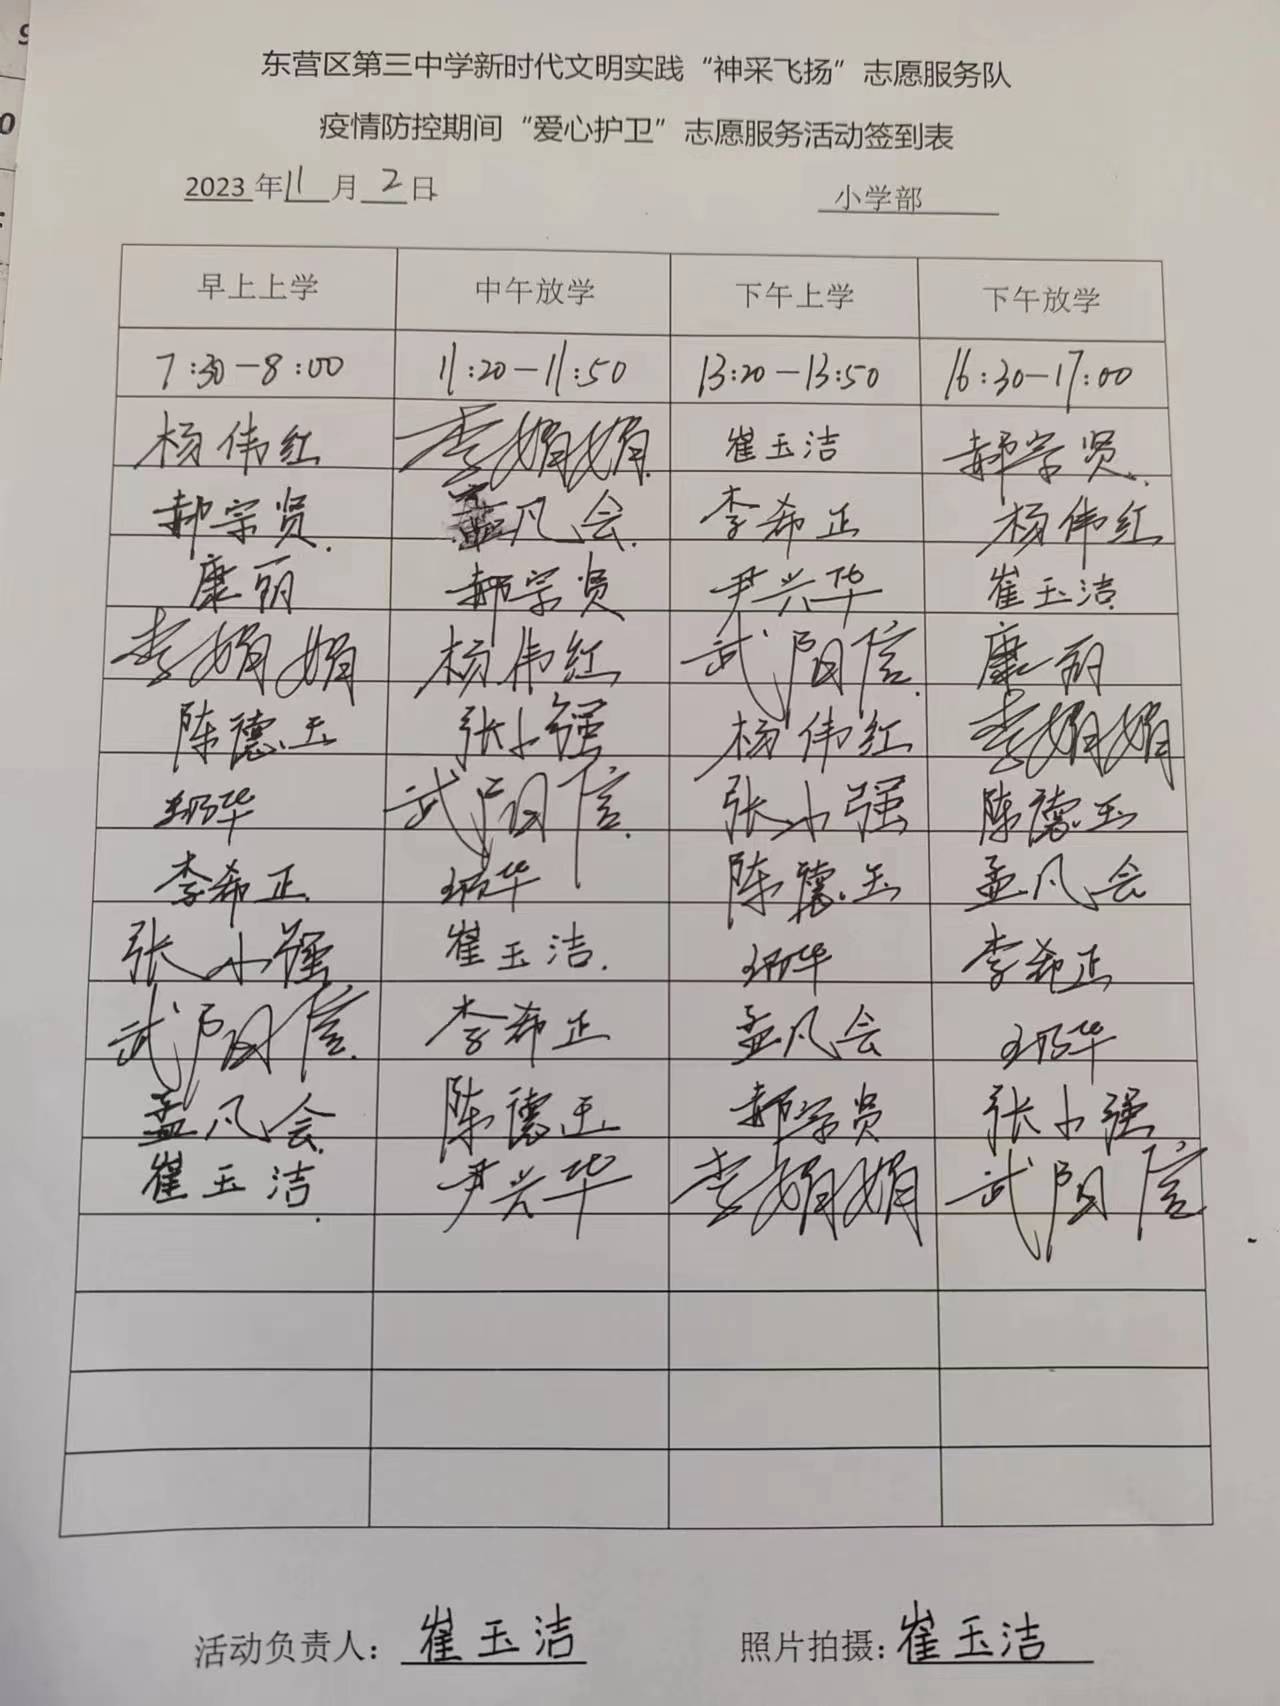 东营区第三中学新时代文明实践“神采飞扬”志愿服务队
疫情防控期间“爱心护卫”志愿服务活动签到表
2023年11月2日 小学部
早上上学 中午放学 下午上学 下午放学
7:30-8:00 11:20-11:50 13:20-13:50 16:30-17:00
杨伟红 李娟娟 崔玉洁 郝宗贤
郝宗贤 孟凡会 李希正 杨伟红
康丽 郝宗贤 尹兴华 崔玉洁
李娟娟 杨伟红 武阳信 康丽
陈德玉 张小强 杨伟红 李娟娟
武阳信 张小强 陈德玉
李希正 陈德玉 孟凡会
张小强 崔玉洁 李希正
武阳信 李希正 孟凡会
孟凡会 陈德玉 郝宗贤 张小强
崔玉洁 尹兴华 李娟娟 武阳信
活动负责人：崔玉洁 照片拍摄：崔玉洁